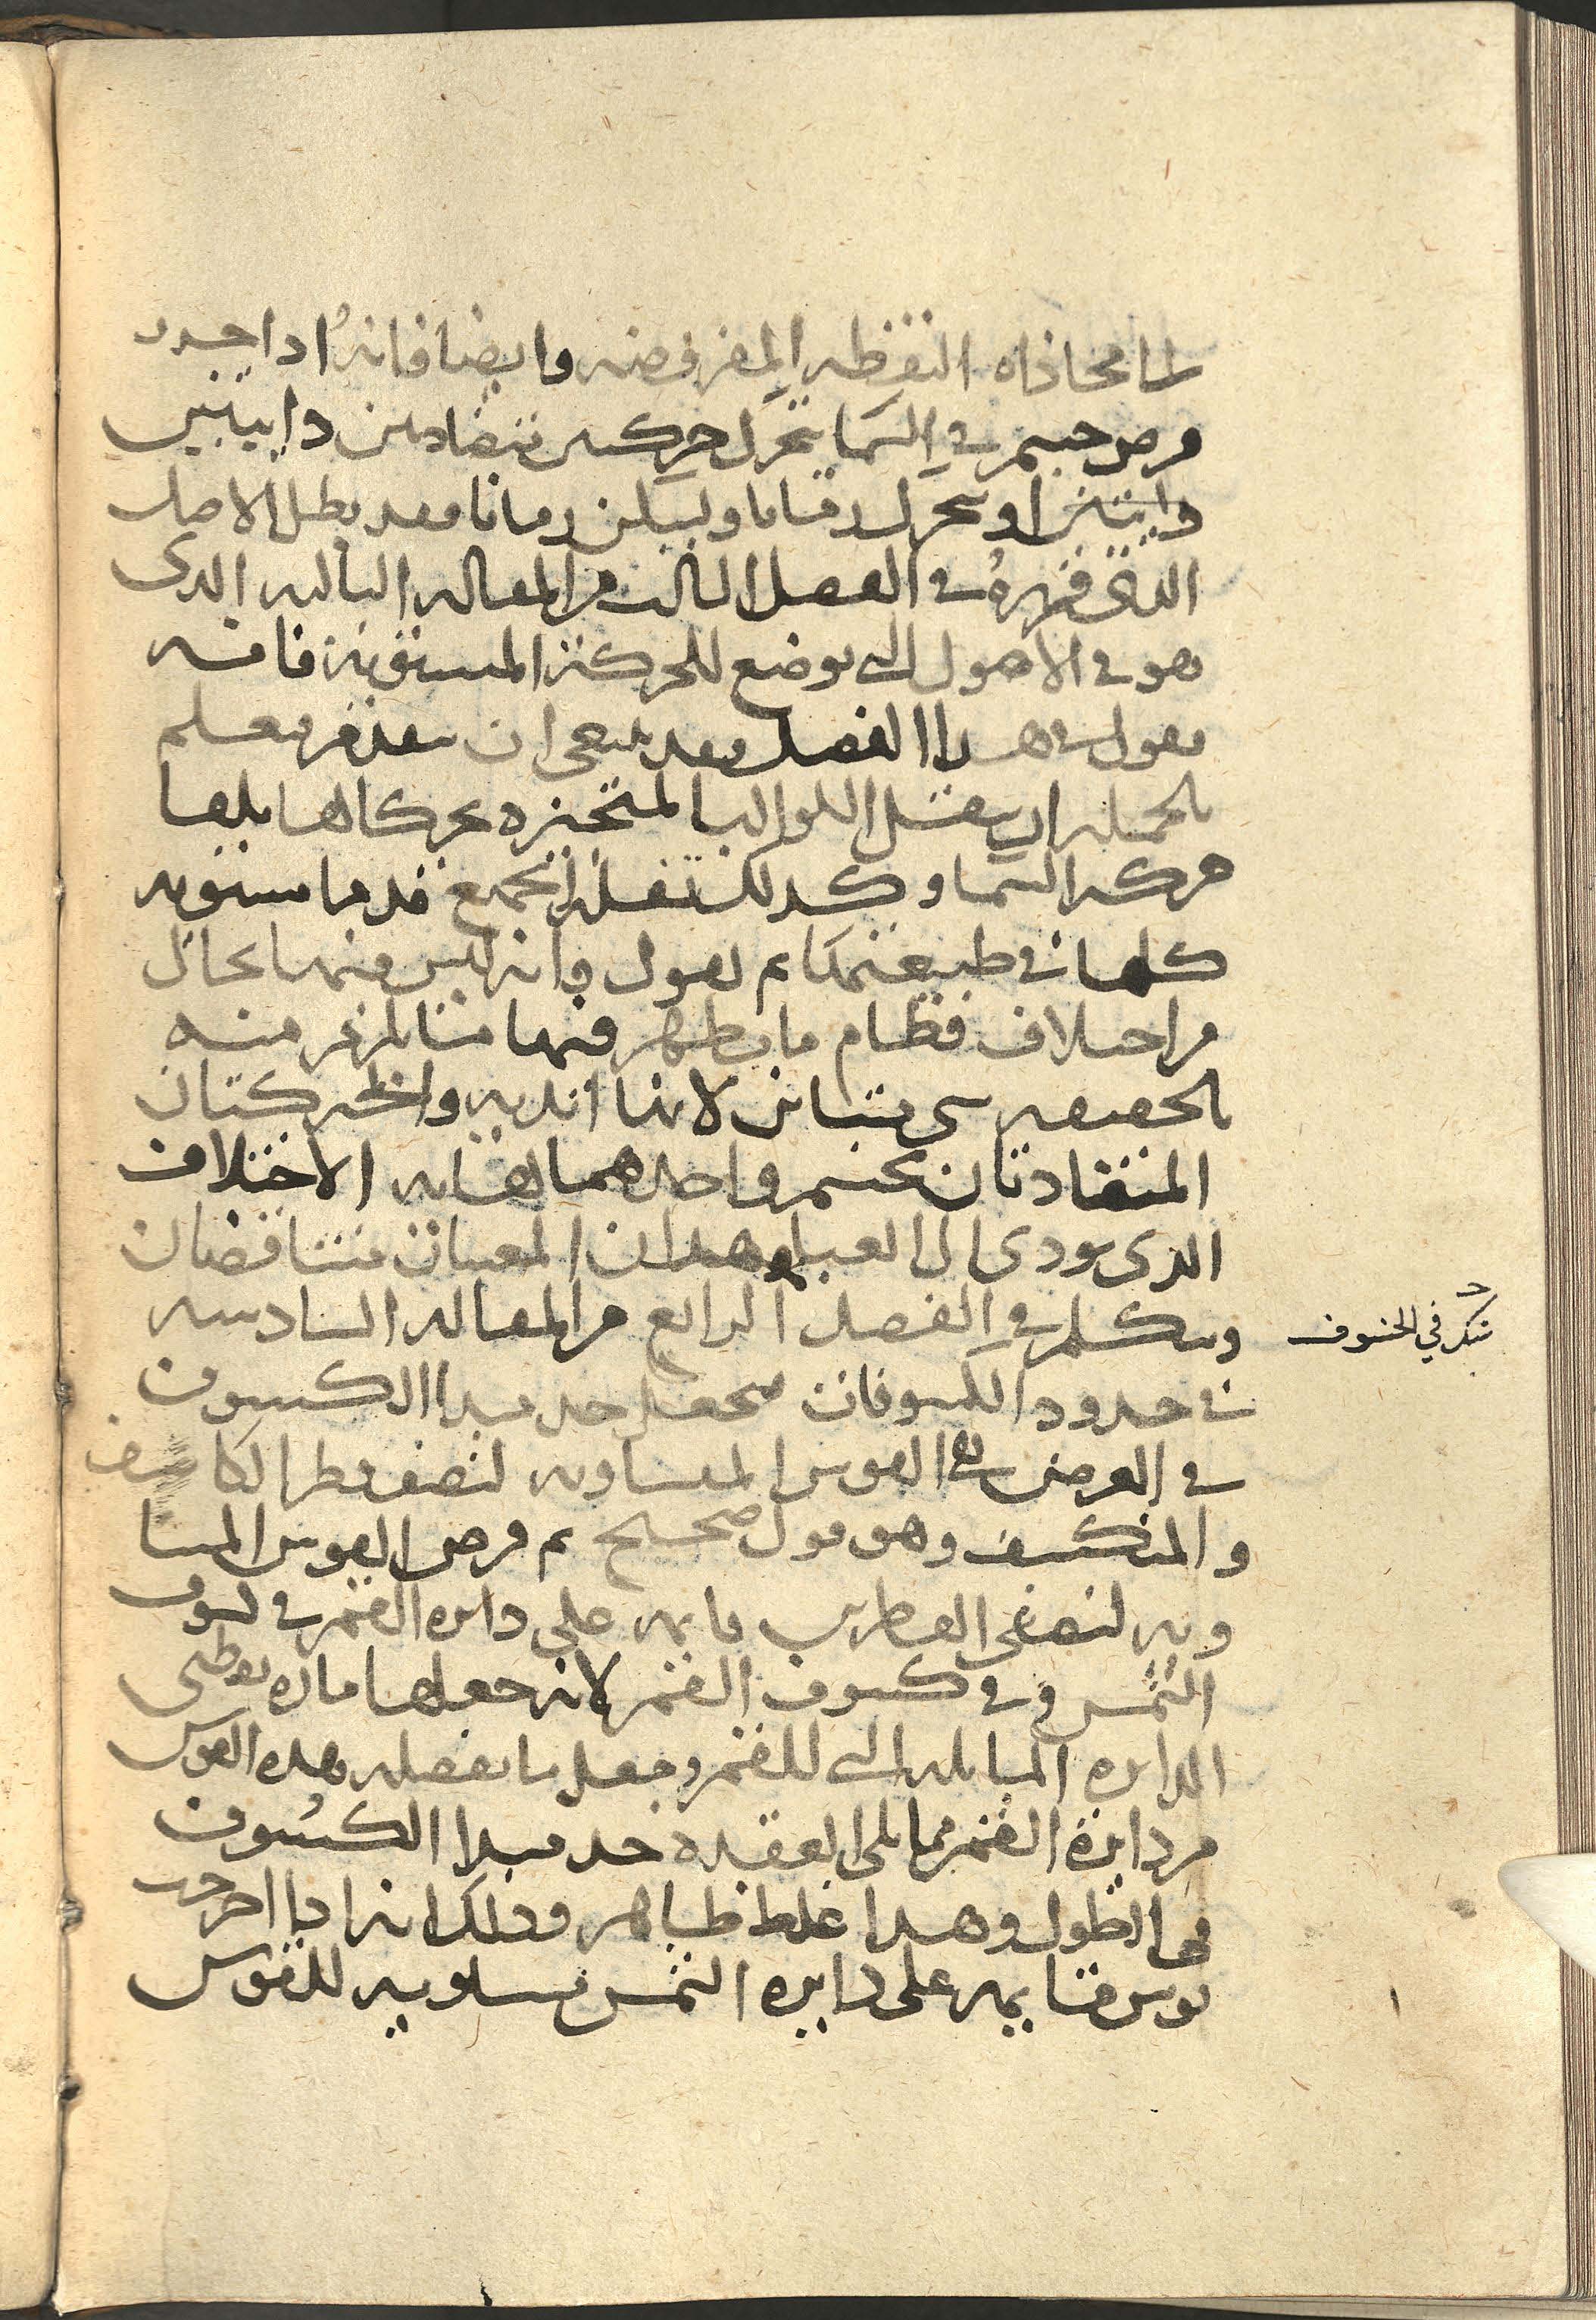 الى محاذاه النقطه المفروضه وايضا فانه اذا جوز
فرض جسم في السما يتحرك حركتين متضادتين دايبتين
دايبتين او يتحرك زمانا ويسكن زمانا فقد بطل الاصل
الذي قرره في الفصل الثالث من المقاله الثالثه الذي
هو في الاصول التي توضع للحركة المستوية فانه
يقول في هذا الفصل وقد ينبغي ان نقدم فنعلم
بالجمله ان نقل الكواكب المتحيزه بحركاتها تلقا
حركه السما وكذلك نقله الجميع قدما مستويه
كلها في طبيعتها ثم يقول وانه ليس فيها بحال
من اختلاف نظام ما يظهر فيها منا يلزمه منه
بالحقيقه شي متباين لانها ابديه والحركتان
المتضادتان بجسم واحد هما لغايه الاختلاف
الذي يودي الى الفساد وهذان المعنيان متناقضان
وتكلم في الفصل الرابع من المقاله السادسه
في حدود الكسوفات فجعل حد مبدا الكسوف
في العرض في القوس المساويه لنصف قطر الكاسف
والمنكسف وهو قول صحيح ثم فرض القوس المسا
ويه لنصفي القطرين قايمه على دايره القمر في كسوف
الشمس وفي كسوف القمر لانه جعلها ماره بقطبي
الدايره المايله التي للقمر وجعل ما تفصله بهذه القوس
من دايرة القمر مما يلي العقده حد مبدا الكسوف
في الطول وهذا غلط ظاهر وذلك انه اذا اخرجت
قوس قايمه على دايره الشمس مساويه للقوس
تكر في الخسوف